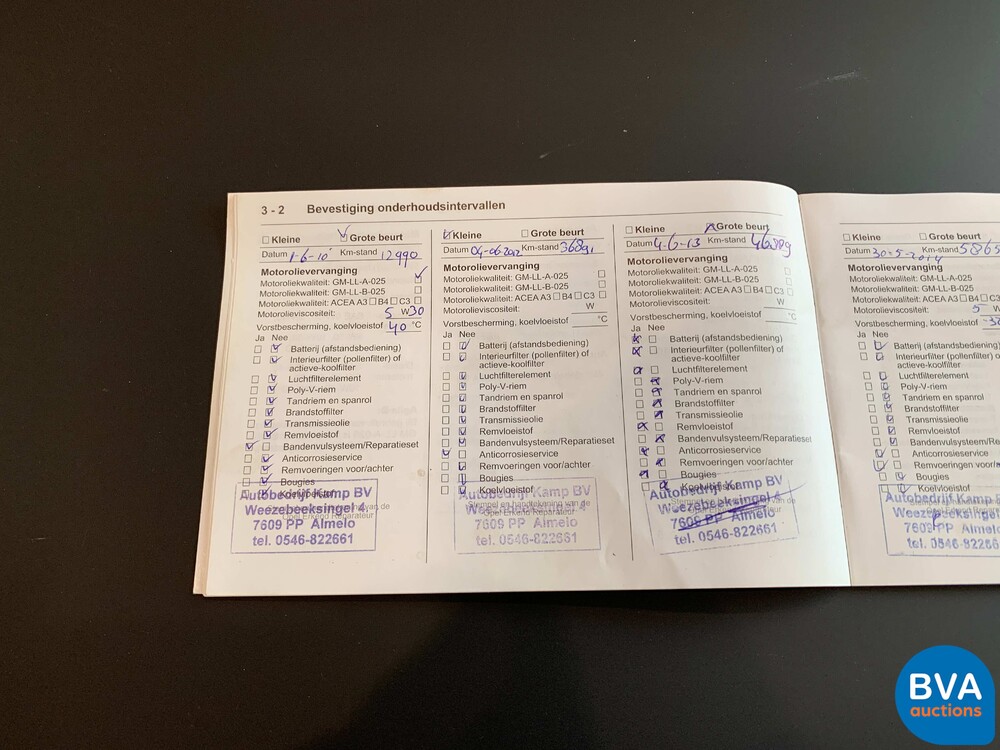 3 - 2 Bevestiging onderhoudsintervallen
Kleine Grote beurt
Datum 1-6-10 Km-stand 12990
Motorolievervanging
Motoroliekwaliteit: GM-LL-A-025
Motoroliekwaliteit: GM-LL-B-025
Motoroliekwaliteit: ACEA A3 B4 C3
Motorolieviscositeit: 5 W30
Vorstbescherming, koelvloeistof 40 °C
Ja Nee
Batterij (afstandsbediening)
Interieurfilter (pollenfilter) of
actieve-koolfilter
Luchtfilterelement
Poly-V-riem
Tandriem en spanrol
Brandstoffilter
Transmissieolie
Remvloeistof
Bandenvulsysteem/Reparatieset
Anticorrosieservice
Remvoeringen voor/achter
Bougies
Koelvloeistof
Autobedrijf Kamp BV
Weezebeeksingel 4
7609 PP Almelo
tel. 0546-822661
Kleine Grote beurt
Datum 04-06 2012 Km-stand 36891
Motorolievervanging
Motoroliekwaliteit: GM-LL-A-025
Motoroliekwaliteit: GM-LL-B-025
Motoroliekwaliteit: ACEA A3 B4 C3
Motorolieviscositeit: W
Vorstbescherming, koelvloeistof °C
Ja Nee
Batterij (afstandsbediening)
Interieurfilter (pollenfilter) of
actieve-koolfilter
Luchtfilterelement
Poly-V-riem
Tandriem en spanrol
Brandstoffilter
Transmissieolie
Remvloeistof
Bandenvulsysteem/Reparatieset
Anticorrosieservice
Remvoeringen voor/achter
Bougies
Koelvloeistof
Autobedrijf Kamp BV
Weezebeeksingel 4
7609 PP Almelo
tel. 0546-822661
Kleine Grote beurt
Datum 4-6-13 Km-stand
Motorolievervanging
Motoroliekwaliteit: GM-LL-A-025
Motoroliekwaliteit: GM-LL-B-025
Motoroliekwaliteit: ACEA A3 B4 C3
Motorolieviscositeit: W
Vorstbescherming, koelvloeistof °C
Ja Nee
Batterij (afstandsbediening)
Interieurfilter (pollenfilter) of
actieve-koolfilter
Luchtfilterelement
Poly-V-riem
Tandriem en spanrol
Brandstoffilter
Transmissieolie
Remvloeistof
Bandenvulsysteem/Reparatieset
Anticorrosieservice
Remvoeringen voor/achter
Bougies
Koelvloeistof
Autobedrijf Kamp BV
Weezebeeksingel 4
7609 PP Almelo
tel. 0546-822661
Kleine Grote beurt
Datum 30-5-2014 Km-stand 5865
Motorolievervanging
Motoroliekwaliteit: GM-LL-A-025
Motoroliekwaliteit: GM-LL-B-025
Motoroliekwaliteit: ACEA A3 B4 C3
Motorolieviscositeit: 5 W
Vorstbescherming, koelvloeistof
Ja Nee
Batterij (afstandsbediening)
Interieurfilter (pollenfilter) of
actieve-koolfilter
Luchtfilterelement
Poly-V-riem
Tandriem en spanrol
Brandstoffilter
Transmissieolie
Remvloeistof
Bandenvulsysteem/Reparatieset
Anticorrosieservice
Remvoeringen voor/achter
Bougies
Koelvloeistof
Autobedrijf Kamp
Weezebeeksingel
7609 PP Almelo
tel. 0546-82266
BVA
auctions